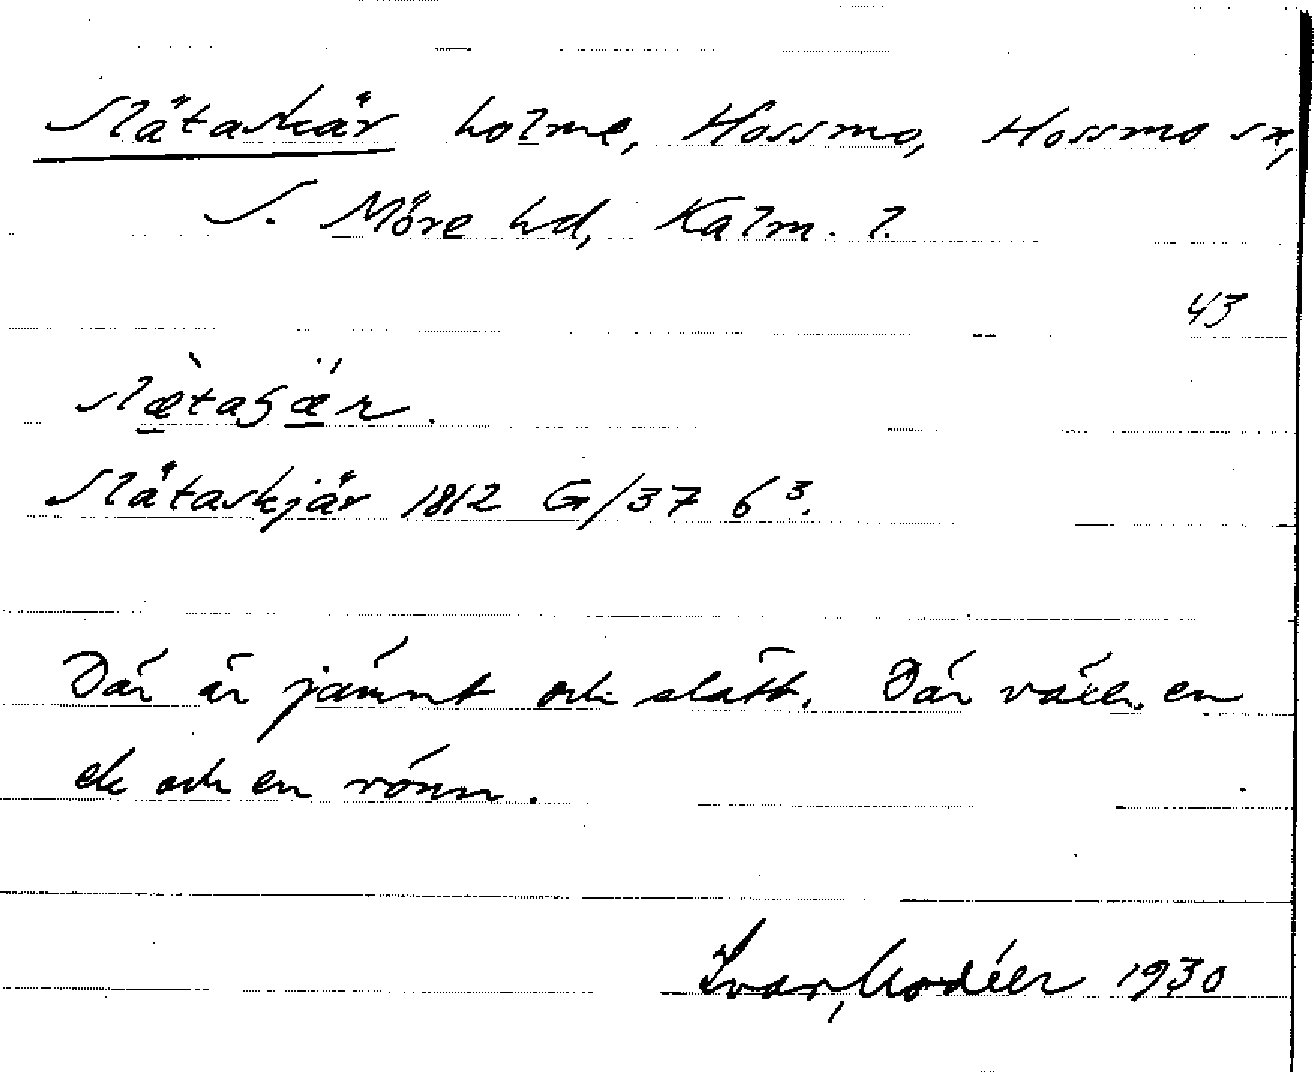 Slätaskär holme, Hossmo, Hossmo sn,
S. Möre hd, Kalm. l.
43
Slætaʃær.
Slätaskjär 1812 G/37 6³.
Där är jämnt och slätt. Där växer en
ek och en rönn.
Ivar Modéer 1930